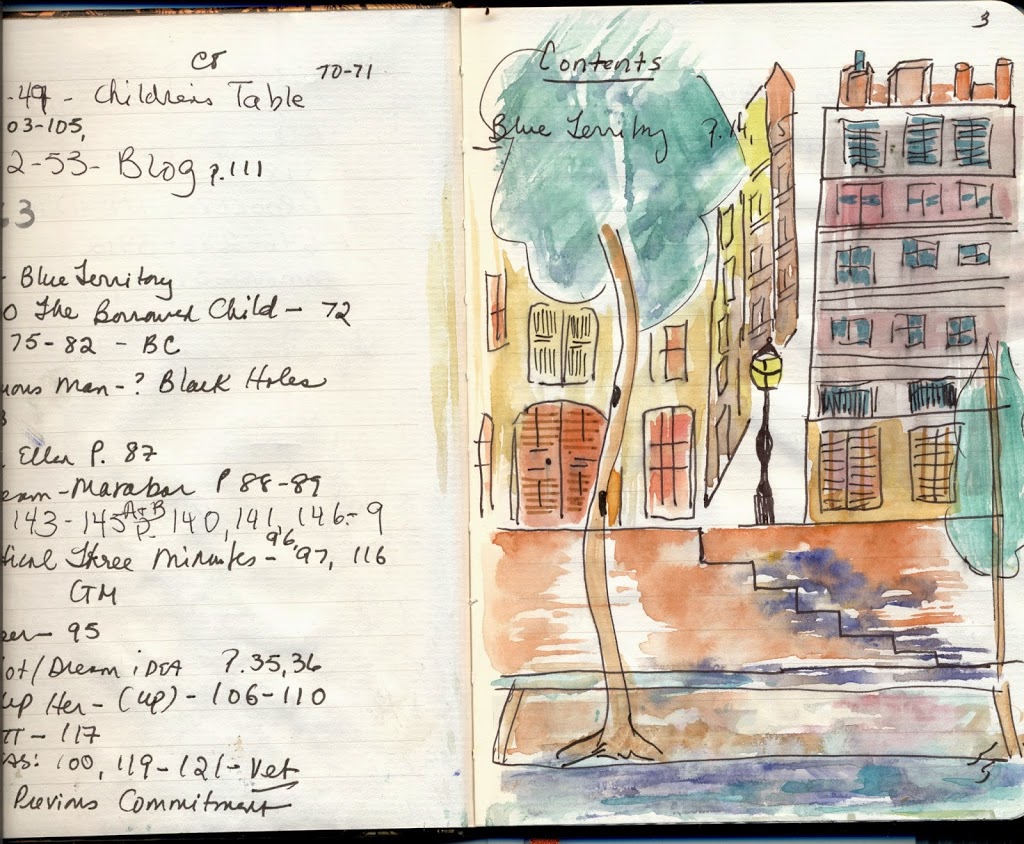 CT
70-71
-49 - Children's Table
03-105,
2-53- Blog p.111
63
- Blue Territory
0 The Borrowed Child - 72
75-82 - BC
uous Man - ? Black Holes
3
Ellen P. 87
eam - Marabar P 88-89
A+B
143-145 P. 140, 141, 146-9
96,
tical Three Minutes - 97, 116
GM
eer - 95
ot/Dream iDEA P. 35, 36
up Her - (up) - 106-110
TT - 117
AS: 100, 119-121 - Vet
Previous Commitment
3
Contents
Blue Territory p. 14, 15